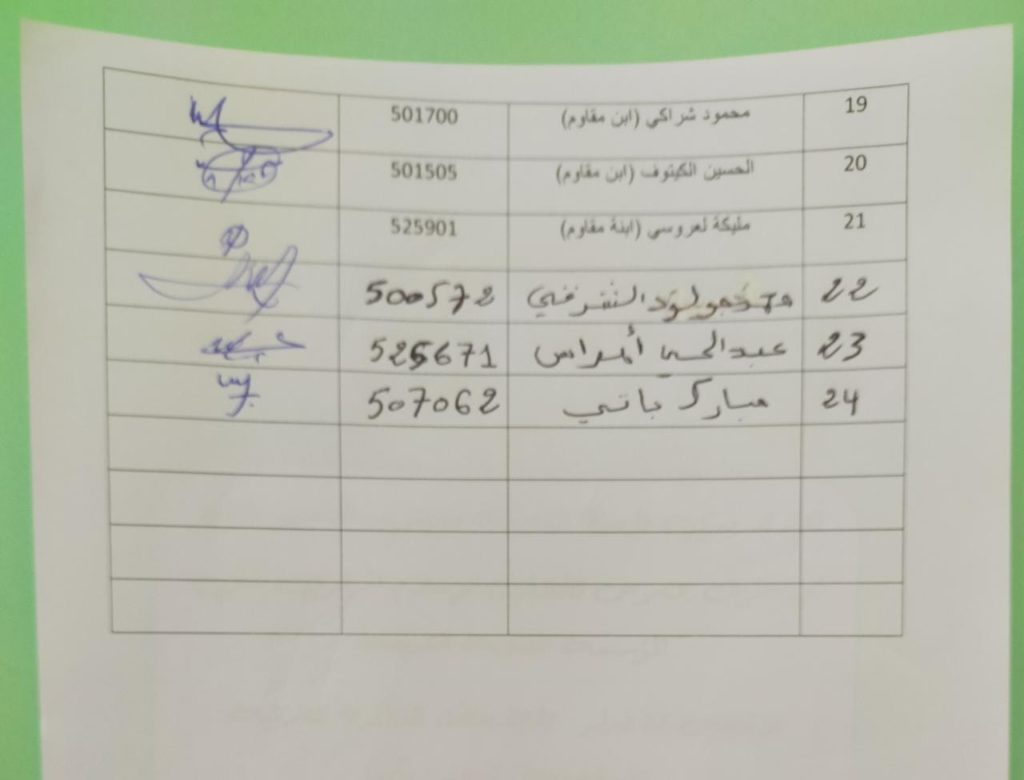 19 محمود شراكي (ابن مقاوم) 501700
20 الحسين الكيتوف (ابن مقاوم) 501505
21 مليكة لعروسي (ابنة مقاوم) 525901
22 مولود الشرفي 500572
23 عبد الحي أمراس 525671
24 مبارك باتي 507062